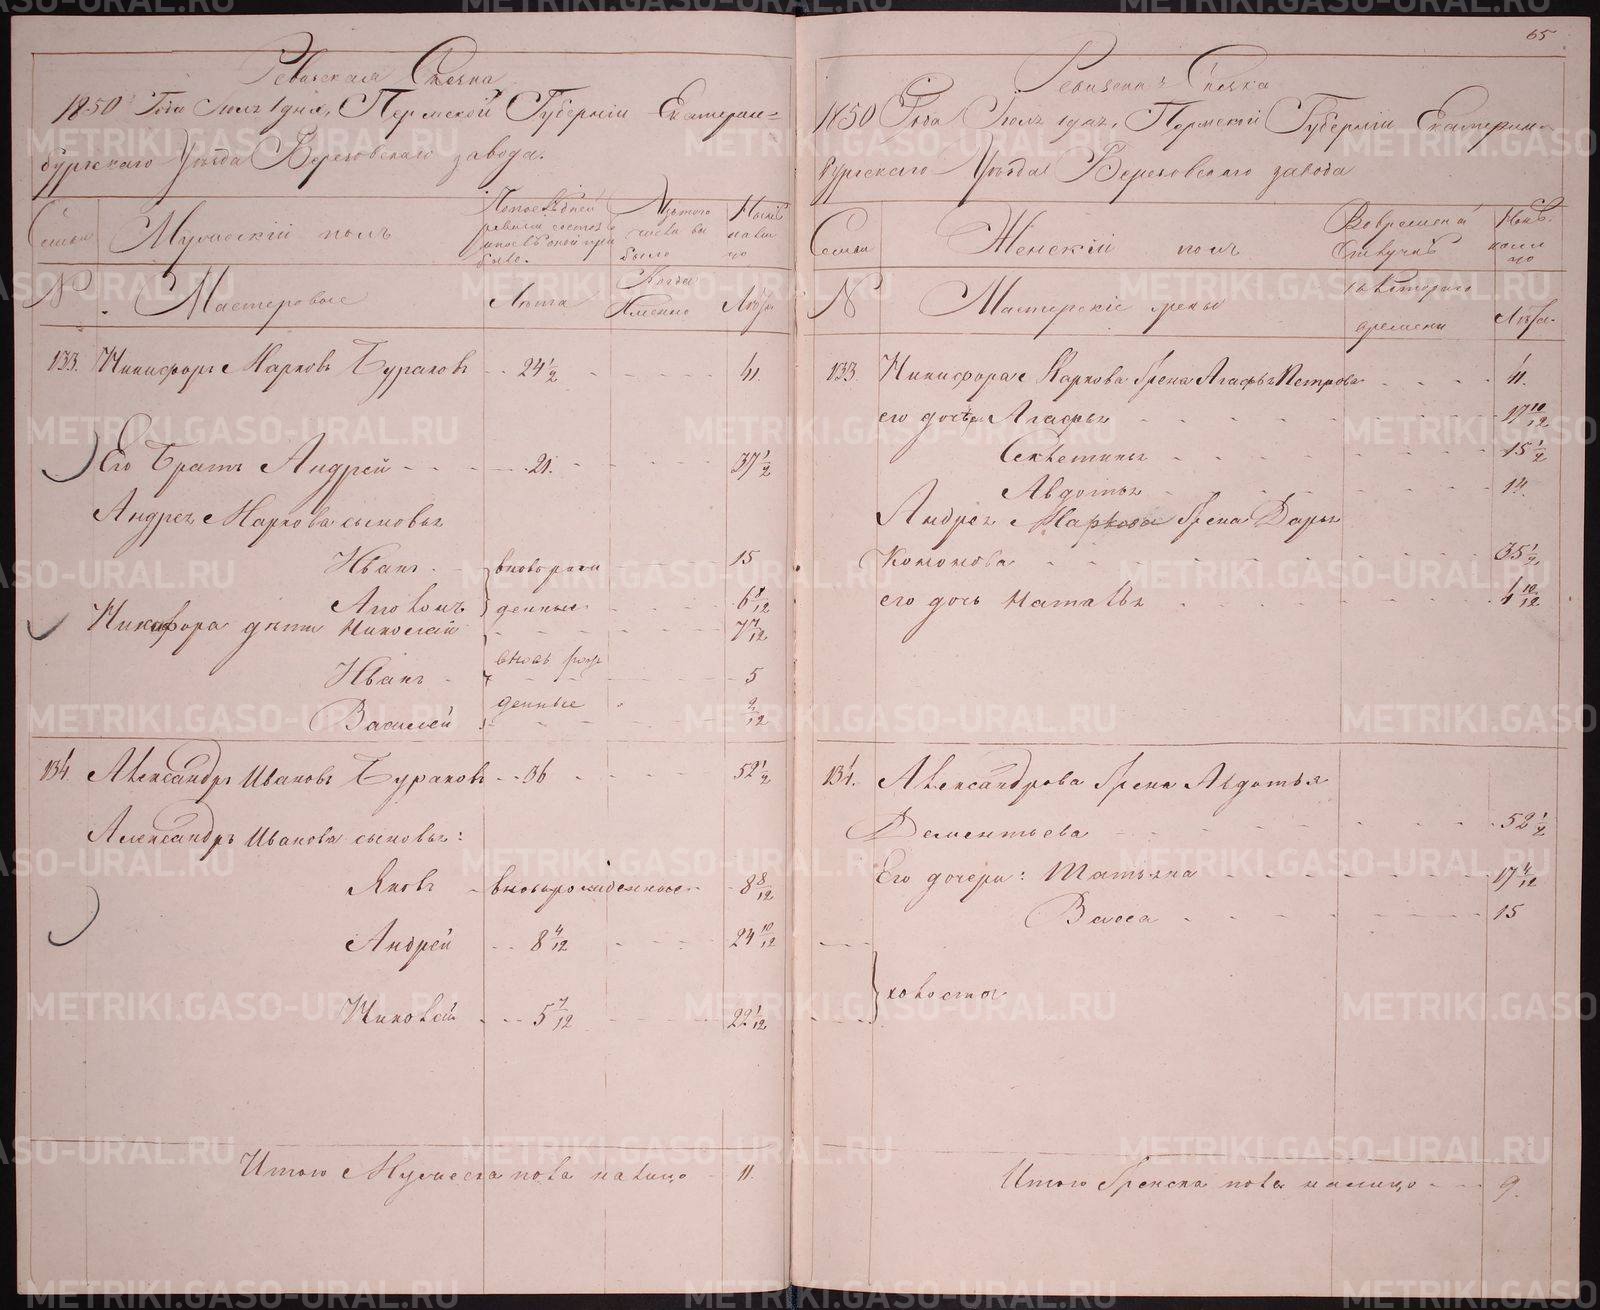 Ревизская Сказка
1850 Года Іюля 1 дня, Пермской Губерніи Екатерин=
бургскаго Уѣзда Березовскаго завода.
Семьи
Мужескій полъ
По последней ревизіи состояло и после оной прибыло.
Изъ того числа выбыло
Ныне на лицо
№
Мастеровые
Лѣта
Когда Именно
Лѣта
133. Никифоръ Марковъ Бураковъ - - 24 1/2 41.
Его братъ Андрей - - - - - 21. - - - - 37 1/2
Андрея Маркова сыновья
Иванъ - - вновь рож 15
Аполонъ денные 6 8/12
Никифора дѣти Николай - - - - 7 7/12
Иванъ - вновь рож 5
Василей денные 9/12
134. Александръ Ивановъ Бураковъ - - 36 - - - - 52 1/2
Александръ Иванова сыновья:
Яковъ - вновьрожденное - 8 8/12
Андрей - - 8 4/12 - - - - 24 10/12
Николай - - - 5 7/12 - - - - 22 1/12
Итого Мужеска пола налицо - 11.
65
Ревизская Сказка
1850 Года Іюля 1 дня, Пермской Губерніи Екатерин-
бургскаго Уѣзда Березовскаго завода
Семьи
Женскій полъ
Во временной Отлучкѣ
Ныне на лицо
№
Мастерскіе жены
съ Котораго времени
Лѣта.
133. Никифора Маркова Жена Агафья Петрова - - - - 41.
его дочери Агафья - - - - 17 10/12
Секлетинья - - - - 15 1/2
Авдотья - - - - 14.
Андрея Маркова Жена Дарья
Кононова - - - - 35 1/2
его дочь Наталья - - - - 4 10/12
134. Александрова Жена Авдотья
Дементьева - - - - 52 1/2
Его дочери: Татьяна - - - - 17 4/12
Васса - - - - 15
холоста
Итого Женска пола налицо - - - 9.
METRIKI.GASO-URAL.RU